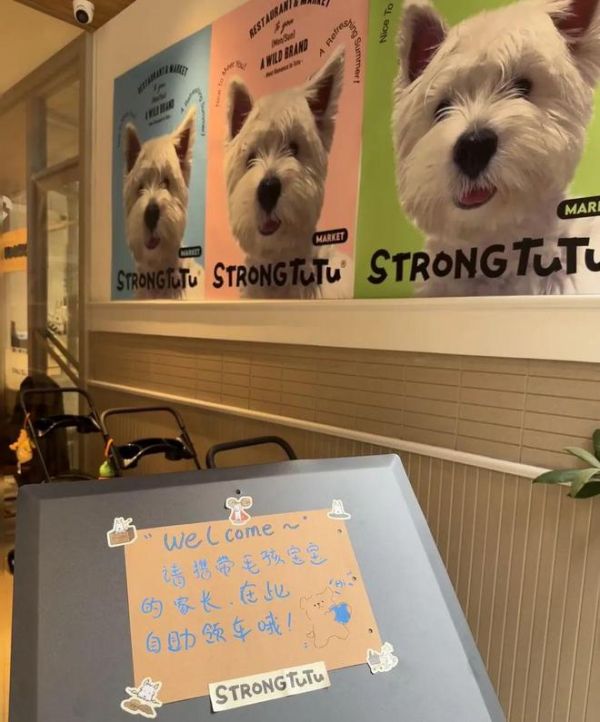 RESTAURANT & MARKET
A WILD BRAND
MARKET
STRONGTuTu
RESTAURANT & MARKET
& you
(Mon/Sun)
A WILD BRAND
Nice To Meet You!
A Refreshing Summer!
MARKET
STRONGTuTu
Nice To
MAR
STRONGTuTu
"Welcome~"
请携带毛孩宝宝
的家长.在此
自助领车哦!
STRONGTuTu